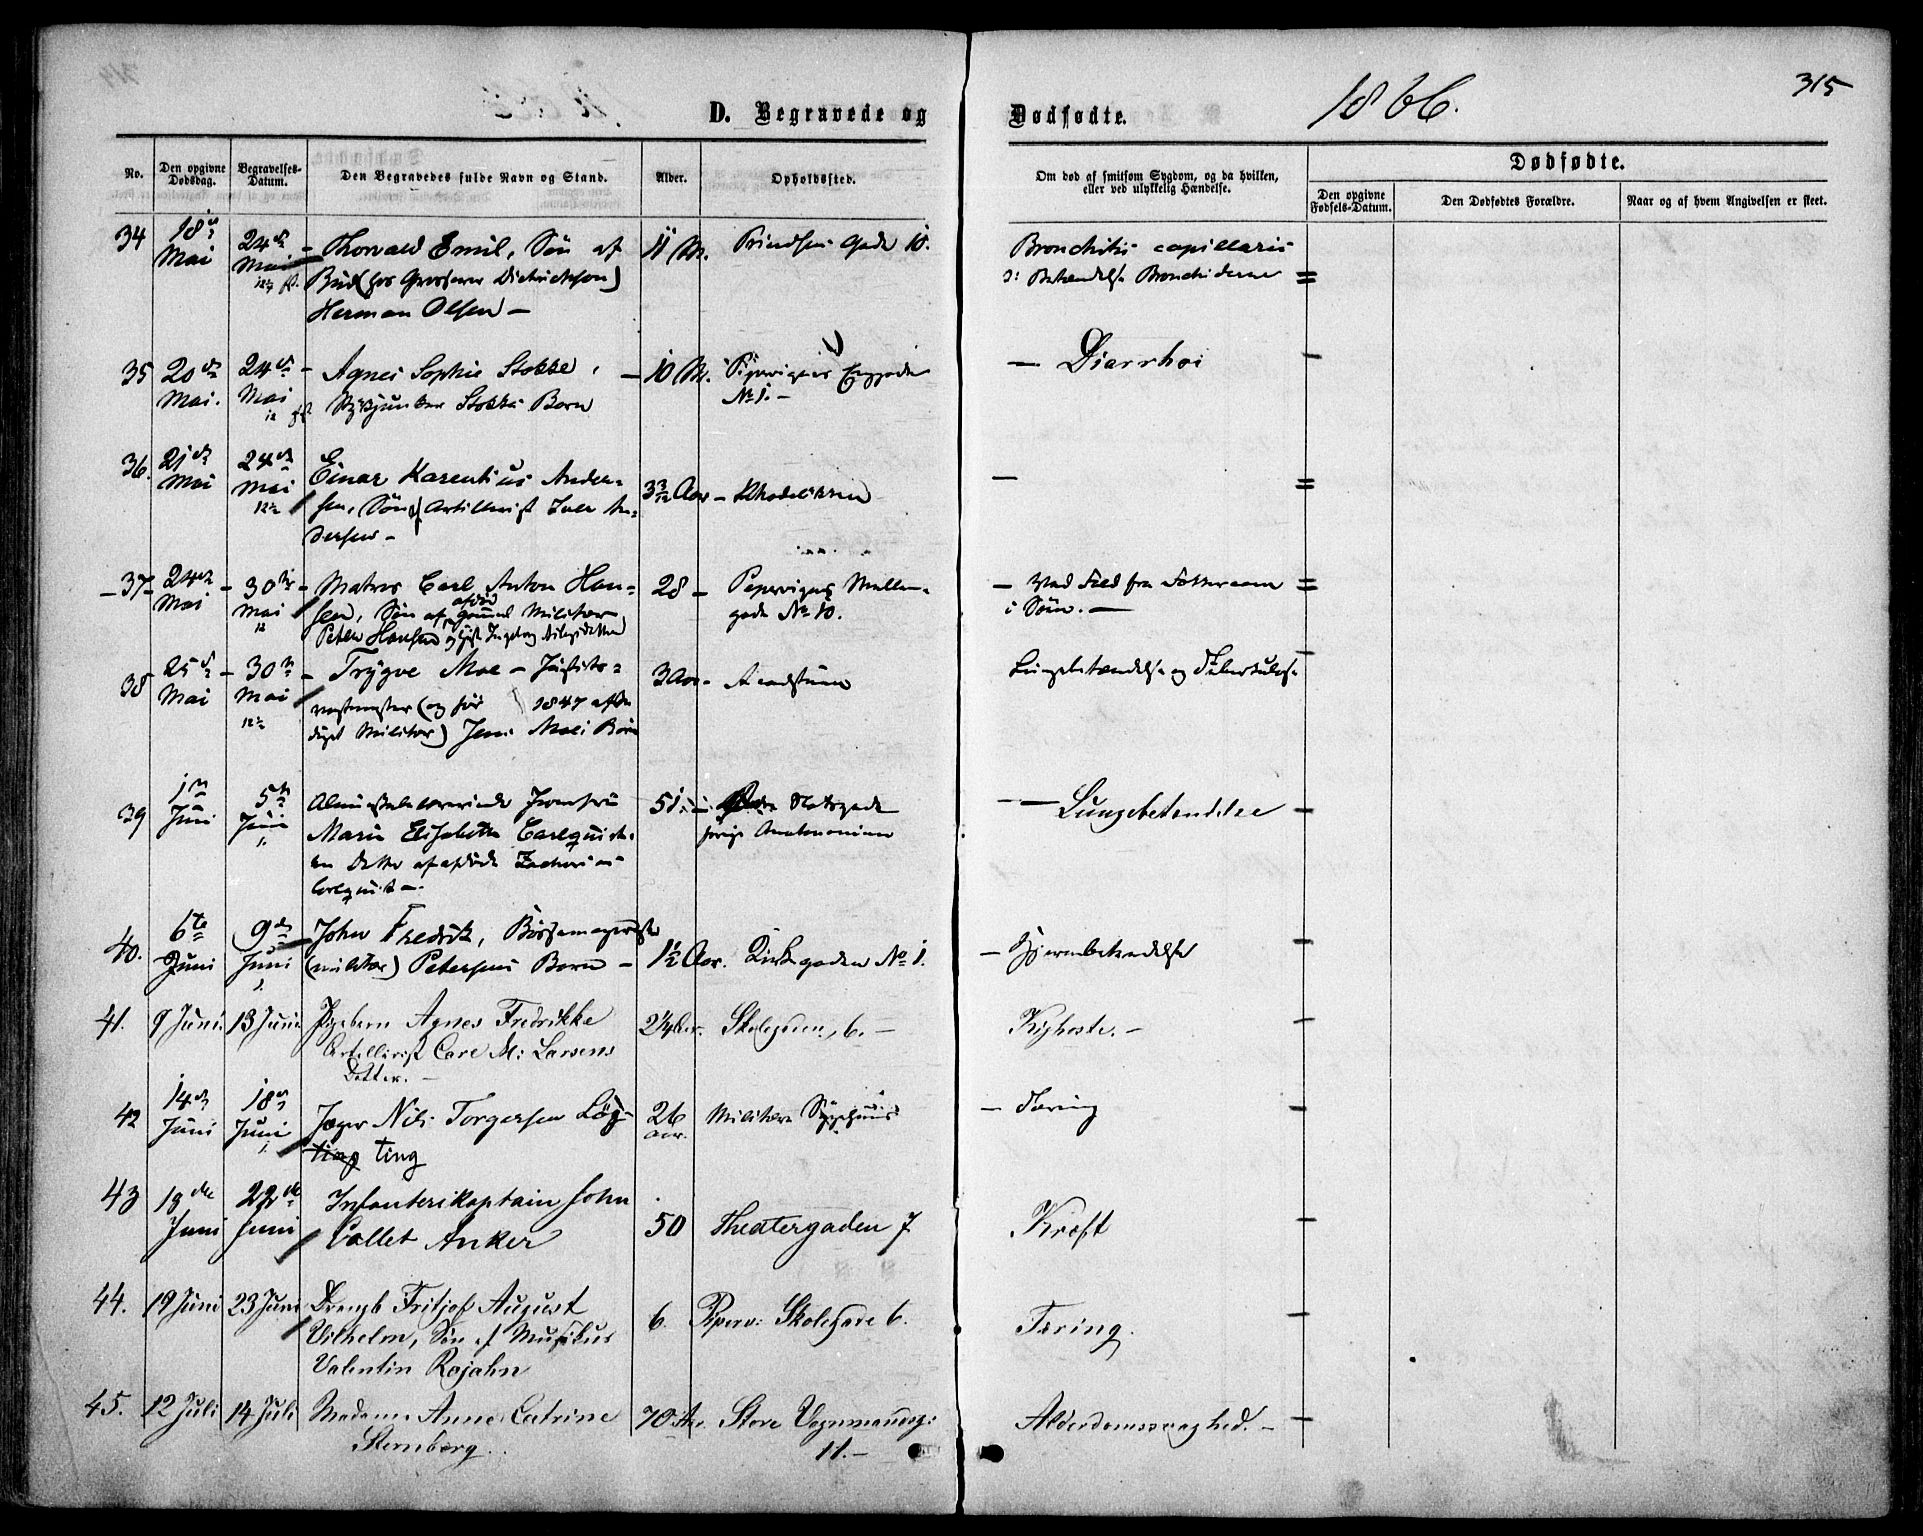 D. Begravede og Dødfødte. 1866. 315
No. Den opgivne Dødsdag. Begravelses-Datum. Den Begravedes fulde Navn og Stand. Alder. Opholdssted. Om død af smitsom Sygdom, og da hvilken, eller ved ulykkelig Hændelse. Dødfødte.
Den opgivne Fødsels-Datum. Den Dødfødtes Forældre. Naar og af hvem Angivelsen er skeet.
34 18de 24de Thorvald Emil, Søn af 11 M. Prindsens Gade 10. Bronchitis capillaris
Mai Mai Bud (hos Grosserer Diedrichsen) Betændelse Bronchiderne
Herman Olsen –
35 20de 24de Agnes Sophie Stokke, 10 M. Pipervigens Enggade – Diarrhoi
Mai. Mai Stokkes Barn No 1. –
36. 21de 24de Einar Karentius Ander- 3 3/12 Aar –
Mai Mai sen, Søn af Artillerist Iver An-
12½ dersen –
37 24de 30te Matros Carl Anton Han- 28 – Pepervigens Møllen- – Ved Fald fra Fokkeraaen
Mai Mai sen, Søn af afdød Militær gade No 10. i Søen. –
12 Peter Hansen og
38 25de 30te Trygve Moe – Justits- 3 Aar – Akershus Lungebetændelse og Tuberkulose
Mai Mai (og før 1847
12½ Militær) Jens Moes Barn
39 1ste 5te Almueskolelærerinde Jomfru 51 Slotsgade – Lungebetændelse
Juni Juni Marie Elisabeth Carlquist
1. Datter af afdøde Zacharias
Carlquist –
40. 6te 9de John Fredrik, Bøssemagersv. 1½ Aar. Kirkegaden No 1. – Hjernebetændelse
Juni Juni (militær) Petersens Barn –
41. 9 Juni. 13 Juni Pigebarn Agnes Fredrikke 2¼ Aar. Skolegaden, 6. – Kighoste. –
Artillerist Carl M: Larsens
Datter. –
42 14de 18de Jæger Nils Torgersen Løg- 26 Militære Sygehuus – Tæring
Juni Juni ting Aar.
43 18de 22de Infanterikaptain John 50 Theatergaden 7 Kræft
Juni Juni Collet Anker
44. 19 Juni 23 Juni Drengb Fritjof August 6. Piperv: Skolegade 6. Tæring.
Vilhelm, Søn af Musikus
Valentin Rojahn
45. 12 Juli 14 Juli Madam Anne Catrine 70 Aar. Store Vognmandsg: Alderdomssvaghed. –
Sternberg. 11. –